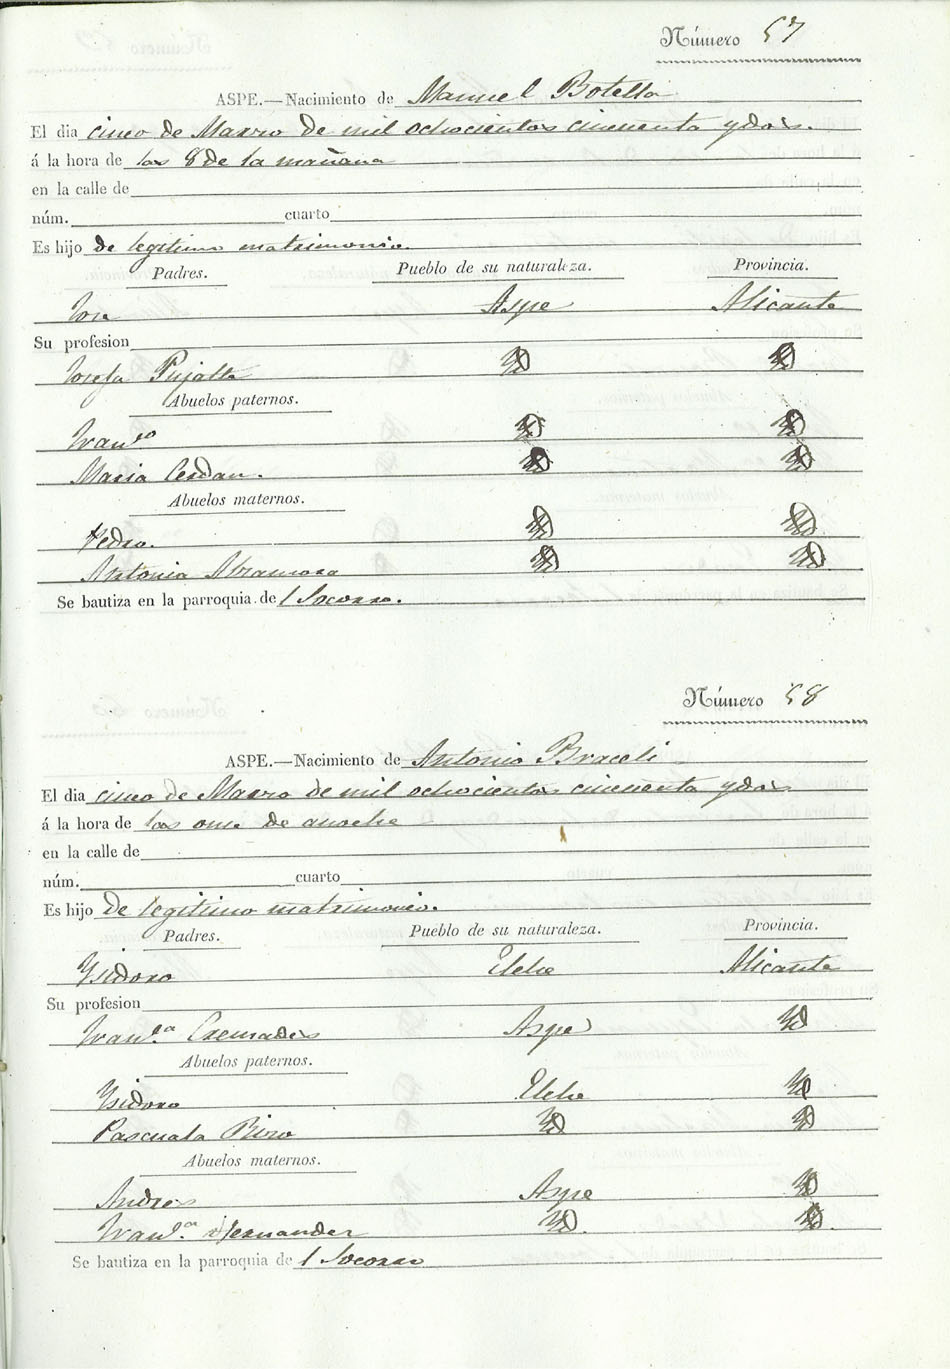 Número 57
ASPE.—Nacimiento de Manuel Botella
El dia cinco de Marzo de mil ochocientos cincuenta y dos.
á la hora de las 8 de la mañana
en la calle de
núm. cuarto
Es hijo de legitimo matrimonio.
Padres. Pueblo de su naturaleza. Provincia.
Jose Aspe Alicante
Su profesion
Josefa Pujalte Yd Yd
Abuelos paternos.
Franco Yd Yd
Maria Cerdan. Yd Yd
Abuelos maternos.
Pedro. Yd Yd
Antonia Abramora Yd Yd
Se bautiza en la parroquia de l Socorro.
Número 58
ASPE.—Nacimiento de Antonio Braceli
El dia cinco de Marzo de mil ochocientos cincuenta y dos
á la hora de las once de anoche
en la calle de
núm. cuarto
Es hijo de legitimo matrimonio.
Padres. Pueblo de su naturaleza. Provincia.
Ysidoro Elche Alicante
Su profesion
Franca Cremades Aspe Yd
Abuelos paternos.
Ysidoro Elche Yd
Pascuala Yd Yd
Abuelos maternos.
Andres Aspe Yd
Franca Hernandez Yd Yd
Se bautiza en la parroquia de l Socorro